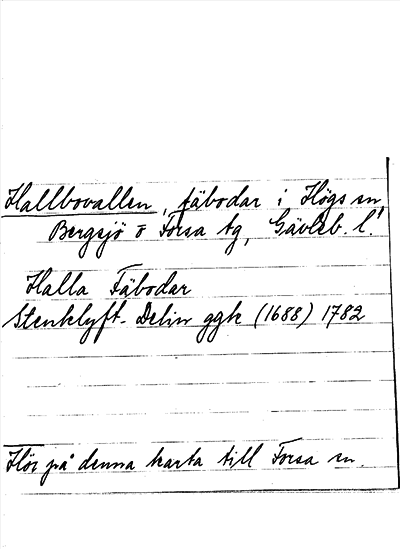 Hallbovallen, fäbodar i Högs sn,
Bergsjö o Forsa tg, Gävleb. l.
Halla Fäbodar
Stenklyft- Delin ggk (1688) 1782
Hör på denna karta till Forsa sn.